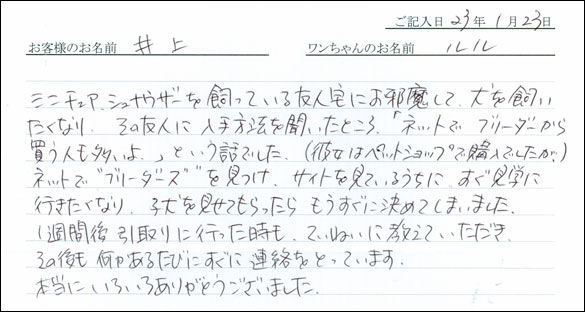 ご記入日 23年 1月 23日
お客様のお名前 井上 ワンちゃんのお名前 ルル
ミニチュア.シュナウザーを飼っている友人宅にお邪魔して、犬を飼い
たくなり、その友人に入手方法を聞いたところ、「ネットで ブリーダーから
買う人も多いよ。」という話でした。(彼女はペットショップで購入でしたが。)
ネットで“ブリーダーズ”を見つけ、サイトを見ているうちに、すぐ見学に
行きたくなり、子犬を見せてもらったら もうすぐに決めてしまいました。
1週間後 引取りに行った時も、ていねいに教えていただき、
その後も 何かあるたびにすぐに 連絡をとっています。
本当にいろいろありがとうございました。